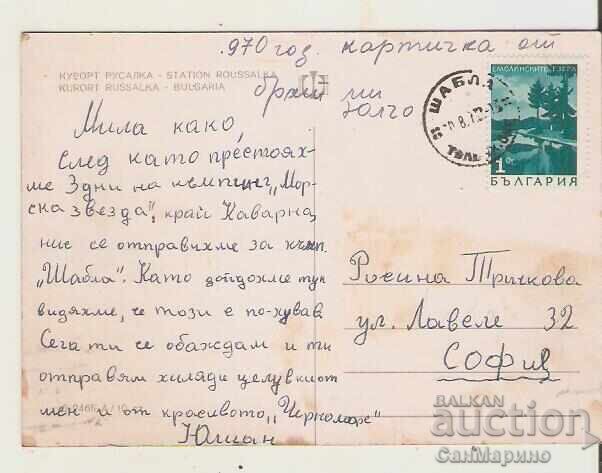 .970 год. картичка от
КУРОРТ РУСАЛКА - STATION ROUSSALKA
KURORT RUSSALKA - BULGARIA
ми
Юлчо
Мила како,
след като престоях-
ме 3 дни на кемпинг „Мор-
ска звезда", край Каварна,
ние се отправихме за къмп.
„Шабла". Като дойдохме тук
видяхме, че този е по-хубав
Сега ти се обаждам и ти
отправям хиляди целувки от
мен и от красивото „Черноморе"
Юлиан
ШАБЛА
СМОЛЯНСКИТЕ ЕЗЕРА
1 ст.
БЪЛГАРИЯ
Росина Тричкова
ул. Лавеле 32
СОФИЯ
BALKAN
auction
СанМарино